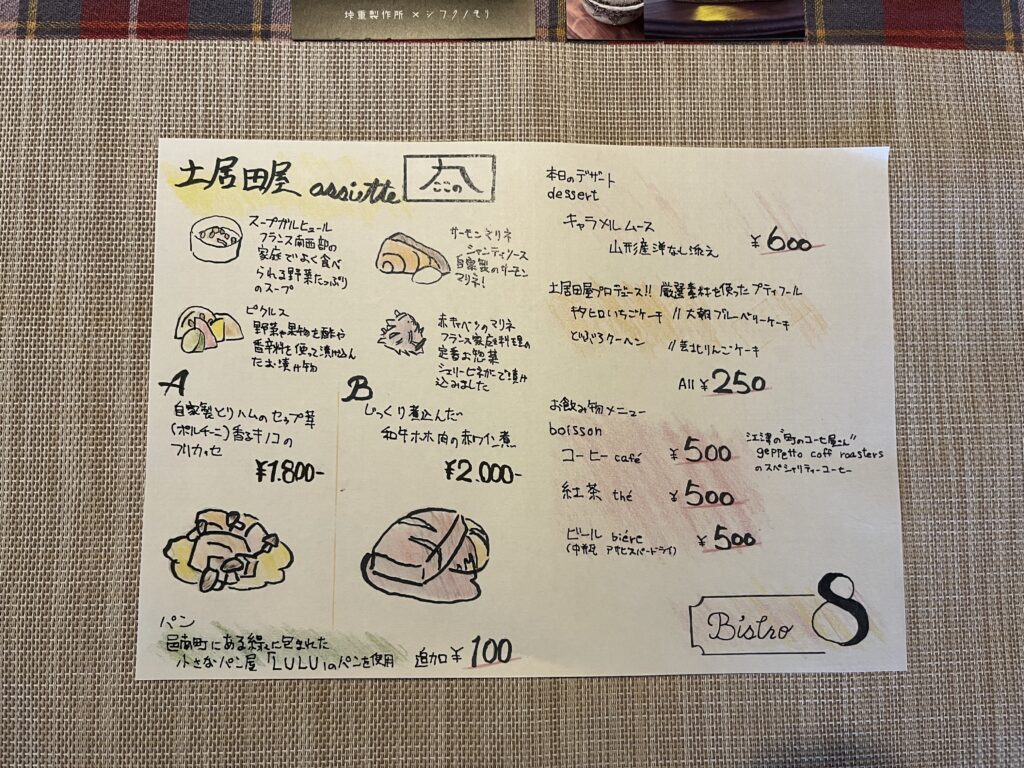 製作所 ×
土居田屋 assiette
ここの
スープガルビュール
フランス南西部の
家庭でよく食べ
られる野菜たっぷり
のスープ
サーモンマリネ
シャンティソース
自家製のサーモン
マリネ!
ピクルス
野菜や果物を酢や
香辛料を使って漬け込ん
だお漬け物
赤キャベツのマリネ
フランス家庭料理の
定番お惣菜
シェリービネガーで漬け
込みました
A
自家製とりハムのセップ茸
(ポルチーニ)香るキノコの
フリカッセ
¥1.800-
B
じっくり煮込んだ
和牛ホホ肉の赤ワイン煮
¥2.000-
パン
邑南町にある緑に包まれた
小さなパン屋「LULU」のパンを使用
追加 ¥100
本日のデザート
dessert
キャラメルムース
山形産洋なし添え
¥600
土居田屋プロデュース!! 厳選素材を使ったプティフール
キタヒロいちごケーキ // 大朝ブルーベリーケーキ
どぶろクーヘン // 芸北りんごケーキ
All ¥250
お飲み物メニュー
boisson
コーヒー café ¥500
江津の"町のコーヒー屋さん"
geppetto coff roasters
のスペシャリティーコーヒー
紅茶 thé ¥500
ビール biére ¥500
(中瓶 アサヒスーパードライ)
Bistro 8